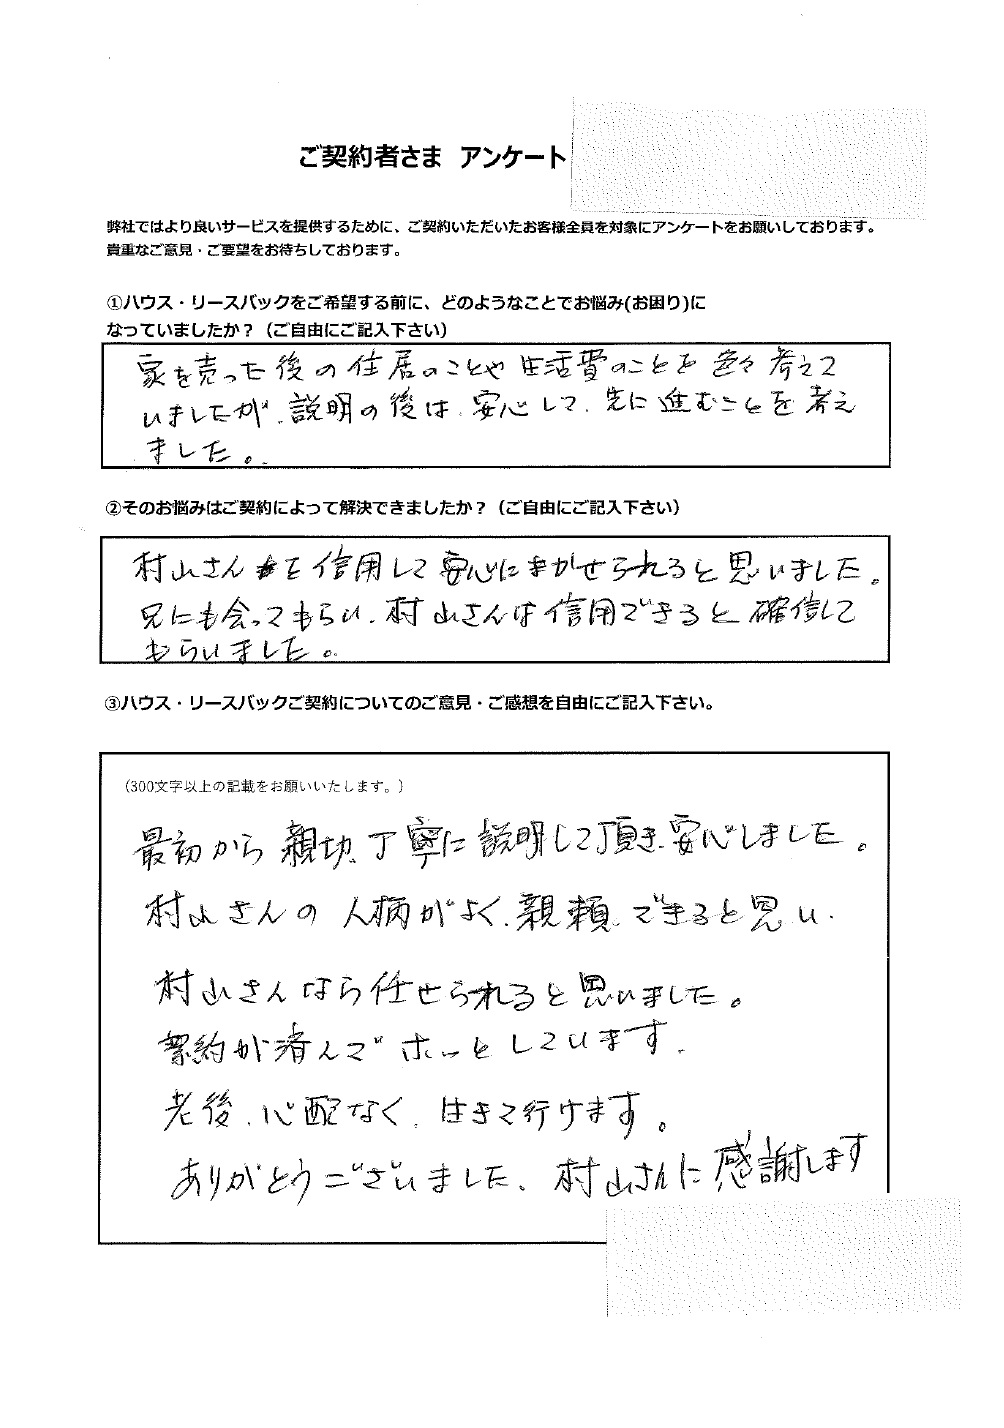 ご契約者さま アンケート
弊社ではより良いサービスを提供するために、ご契約いただいたお客様全員を対象にアンケートをお願いしております。
貴重なご意見・ご要望をお待ちしております。
①ハウス・リースバックをご希望する前に、どのようなことでお悩み(お困り)に
なっていましたか？（ご自由にご記入下さい）
家を売った後の住居のことや生活費のことを色々考えて
いましたが、説明の後は、安心して、先に進むことを考え
ました。
②そのお悩みはご契約によって解決できましたか？（ご自由にご記入下さい）
村山さんを信用して安心にまかせられると思いました。
兄にも会ってもらい、村山さんは信用できると確信して
もらいました。
③ハウス・リースバックご契約についてのご意見・ご感想を自由にご記入下さい。
（300文字以上の記載をお願いいたします。）
最初から親切、丁寧に説明して頂き、安心しました。
村山さんの人柄がよく、親頼、できると思い、
村山さんなら任せられると思いました。
契約が済んでホッとしています。
老後、心配なく、生きて行けます。
ありがとうございました、村山さんに感謝します